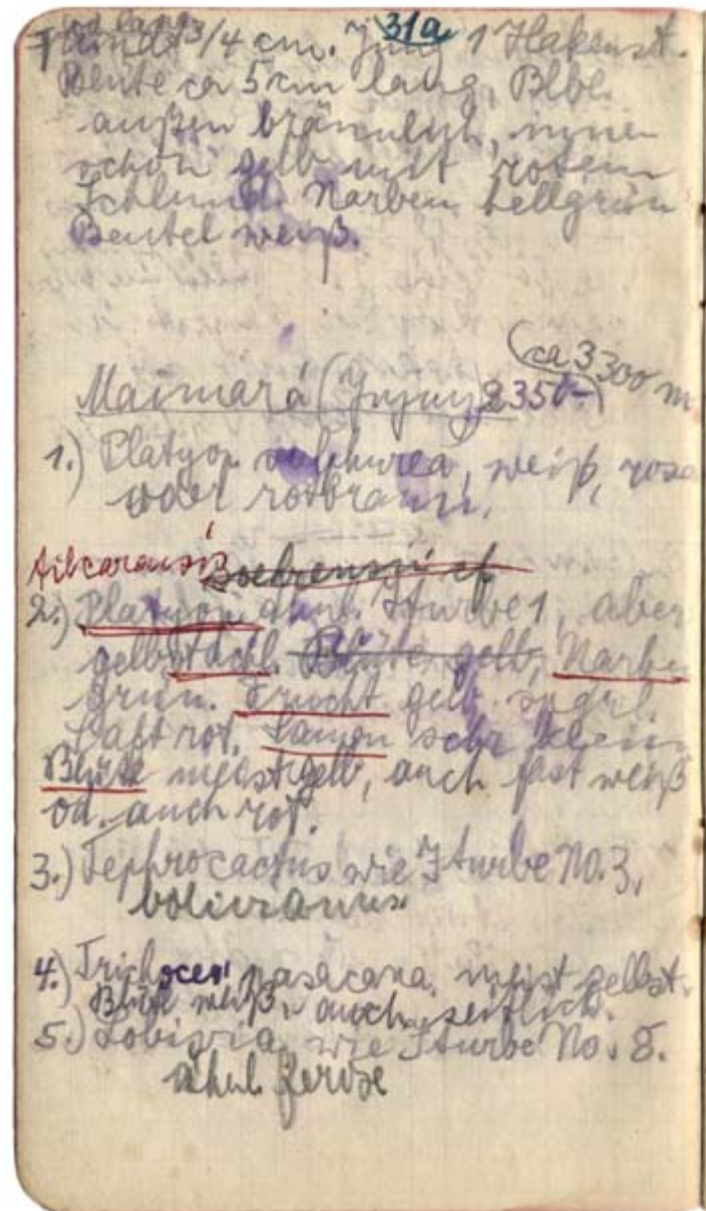 und lang
31a
rund 3/4 cm. Jung 1 Hakenst.
Blüte ca 5 cm lang, Blbl.
außen bräunlich, innen
schön gelb mit rotem
Schlund. Narben hellgrün
Beutel weiß.
(ca 3300 m
Maimará (Jujuy 2350-)
1.) Platyop. sulphurea, weiß, rosa
oder rotbraun.
tilcarensis soehrensii cf
2.) Platyop. ähnl. Iturbe 1, aber
gelbstachl. Blüte gelb, Narben
grün. Frucht gelb
Saft rot. Samen sehr klein
Blüte meist gelb, auch fast weiß
od. auch rot.
3.) Tephrocactus wie Iturbe No. 3,
bolivianus
4.) Trichocer. pasacana, meist gelbst.
Blüte weiß, auch seitlich.
5.) Lobivia, wie Iturbe No. 8.
ähnl ferox